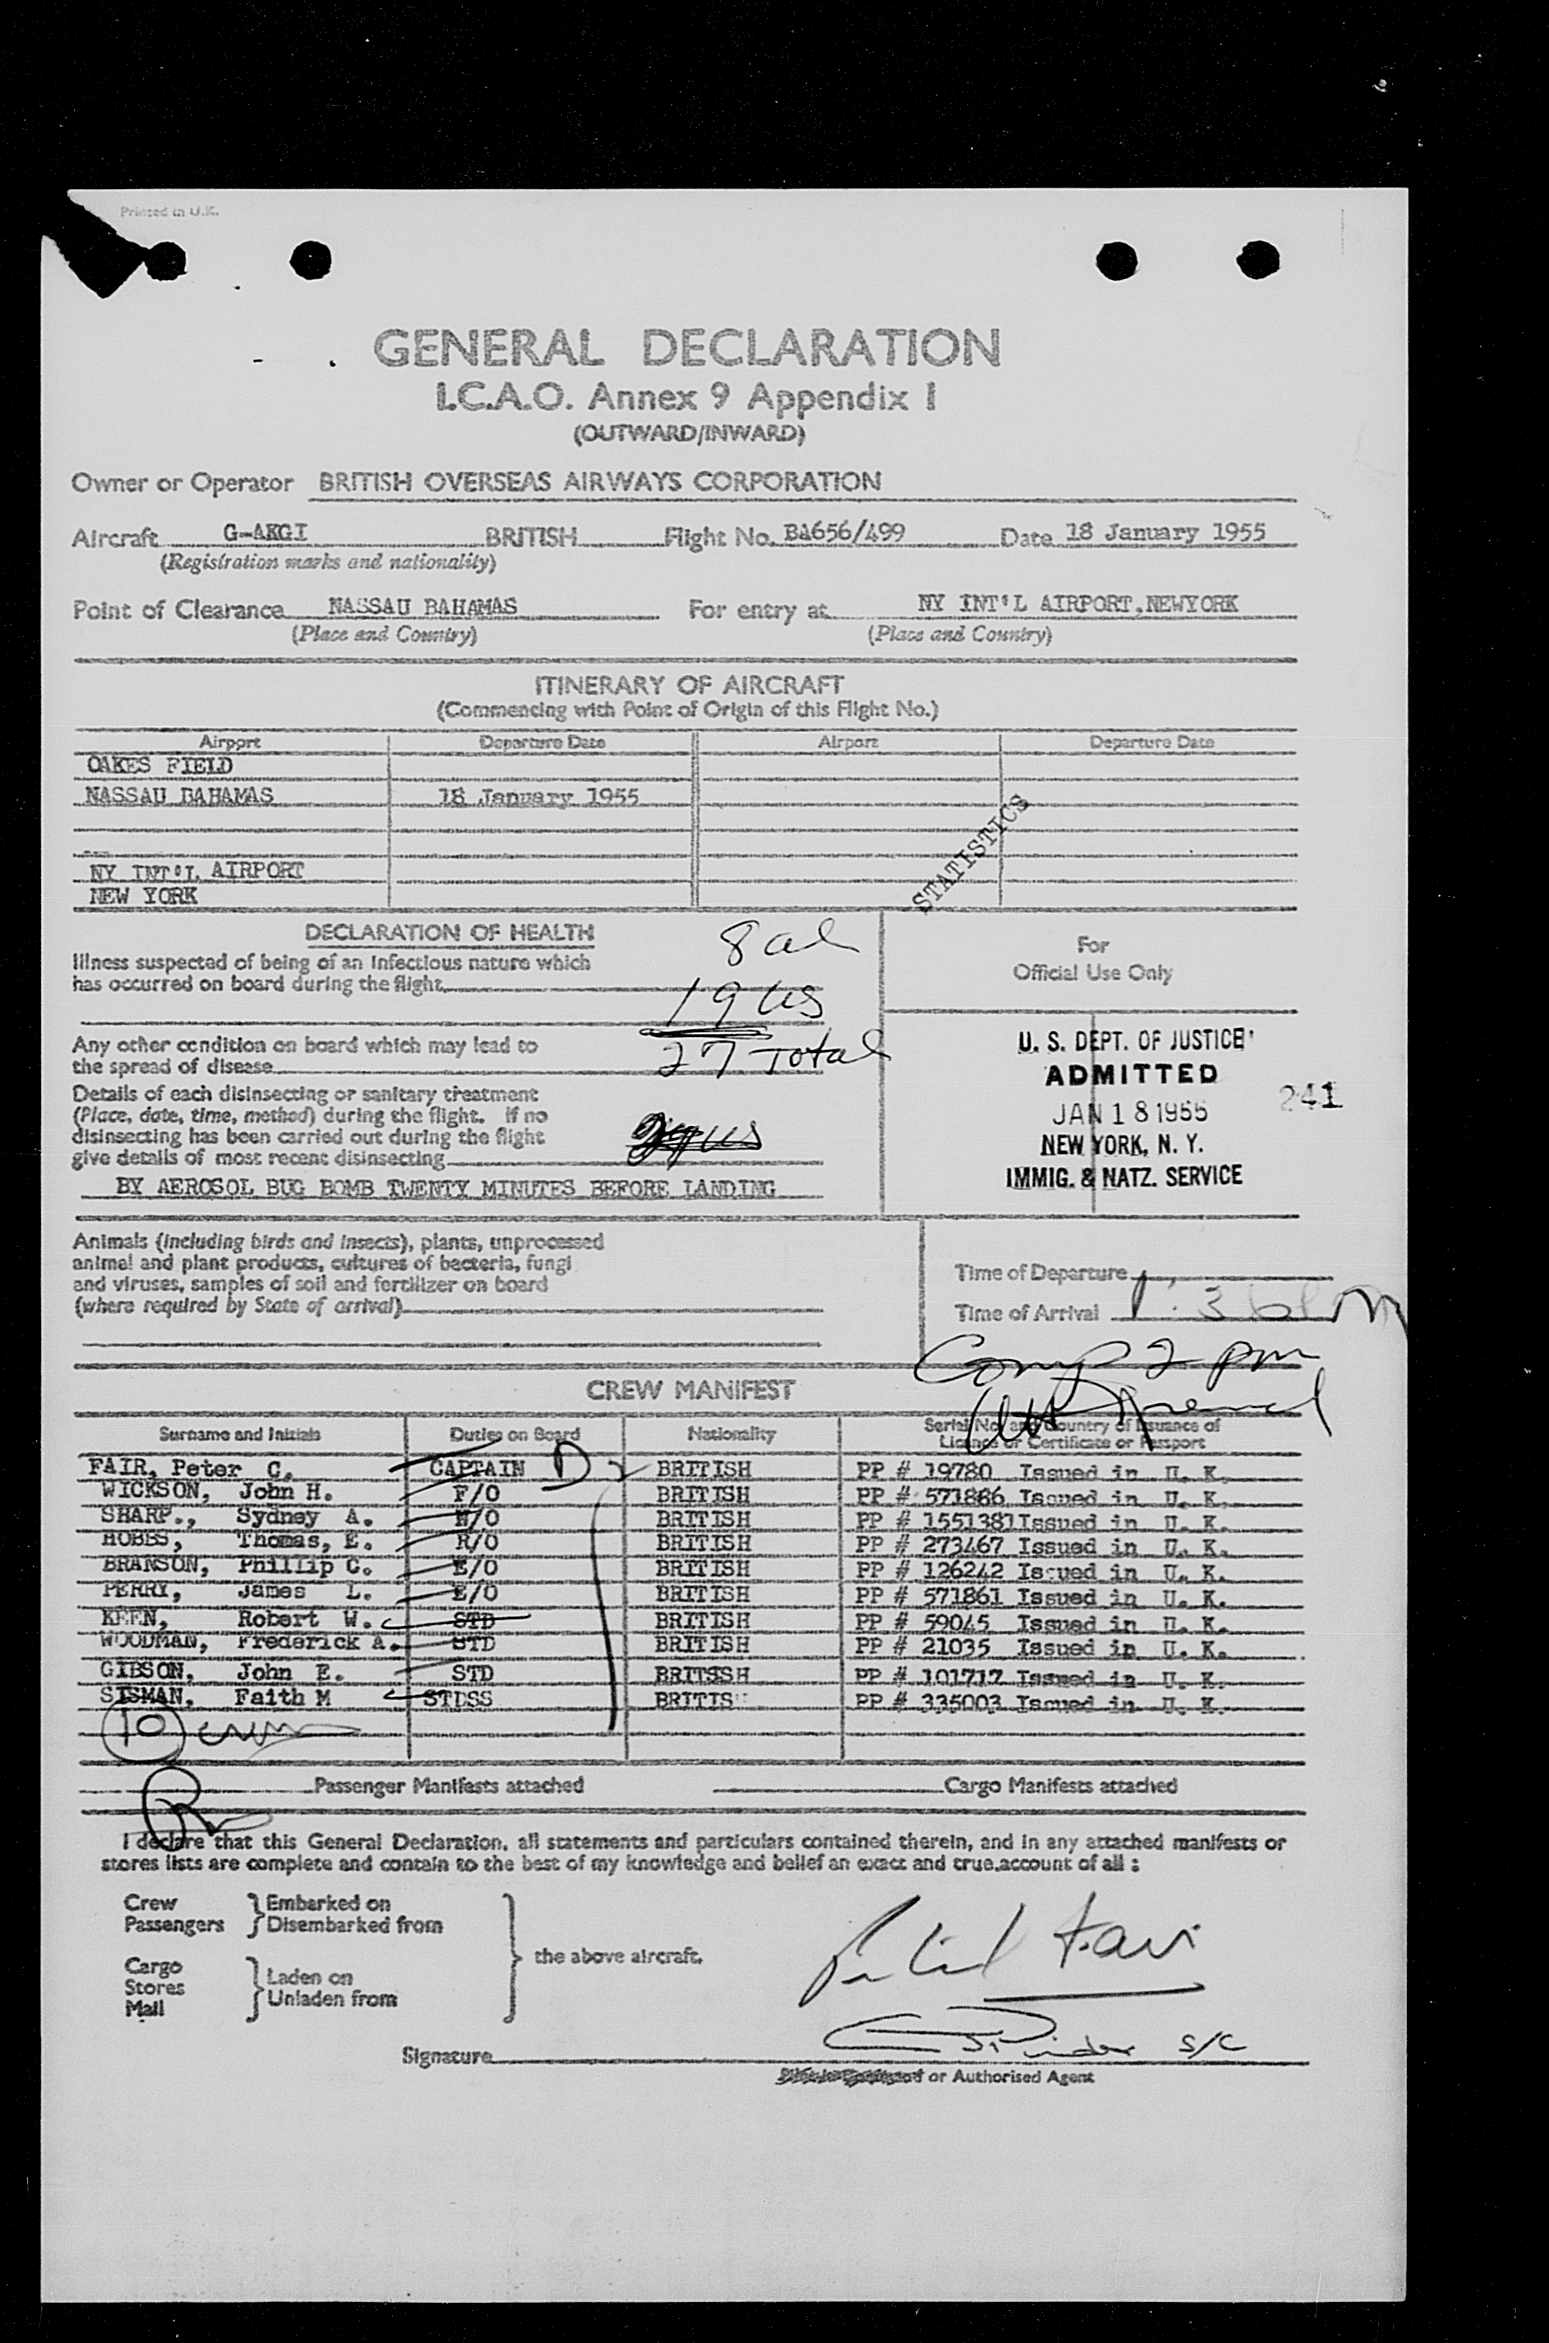 Printed in U.K.
GENERAL DECLARATION
I.C.A.O. Annex 9 Appendix I
(OUTWARD/INWARD)
Owner or Operator BRITISH OVERSEAS AIRWAYS CORPORATION
Aircraft G-AKGI BRITISH Flight No. BA656/499 Date 18 January 1955
(Registration marks and nationality)
Point of Clearance NASSAU BAHAMAS For entry at NY INT'L AIRPORT, NEWYORK
(Place and Country) (Place and Country)
ITINERARY OF AIRCRAFT
(Commencing with Point of Origin of this Flight No.)
Airport Departure Date Airport Departure Date
OAKES FIELD
NASSAU BAHAMAS 18 January 1955
STATISTICS
NY INT'L AIRPORT
NEW YORK
DECLARATION OF HEALTH
8 al
Illness suspected of being of an infectious nature which
has occurred on board during the flight
19 us
Any other condition on board which may lead to
the spread of disease
27 Total
Details of each disinsecting or sanitary treatment
(Place, date, time, method) during the flight. If no
disinsecting has been carried out during the flight
give details of most recent disinsecting
BY AEROSOL BUG BOMB TWENTY MINUTES BEFORE LANDING
For
Official Use Only
U. S. DEPT. OF JUSTICE
ADMITTED
JAN 18 1955
NEW YORK, N. Y.
IMMIG. & NATZ. SERVICE
241
Animals (including birds and insects), plants, unprocessed
animal and plant products, cultures of bacteria, fungi
and viruses, samples of soil and fertilizer on board
(where required by State of arrival)
Time of Departure
Time of Arrival 1:36 PM
Comp 2 pm
CREW MANIFEST
Surname and Initials Duties on Board Nationality Serial No. and Country of Issuance of
Licence or Certificate or Passport
FAIR, Peter C. CAPTAIN D BRITISH PP # 19780 Issued in U. K.
WICKSON, John H. F/O BRITISH PP # 571886 Issued in U. K.
SHARP., Sydney A. N/O BRITISH PP # 1551381 Issued in U. K.
HOBBS, Thomas, E. R/O BRITISH PP # 273467 Issued in U. K.
BRANSON, Phillip C. E/O BRITISH PP # 126242 Issued in U. K.
PERRY, James L. E/O BRITISH PP # 571861 Issued in U. K.
KEEN, Robert W. STD BRITISH PP # 59045 Issued in U. K.
WOODMAN, Frederick A. STD BRITISH PP # 21035 Issued in U. K.
GIBSON, John E. STD BRITSSH PP # 101717 Issued in U. K.
SISMAN, Faith M STDSS BRITIS PP # 335003 Issued in U. K.
10 crew
Passenger Manifests attached Cargo Manifests attached
I declare that this General Declaration, all statements and particulars contained therein, and in any attached manifests or
stores lists are complete and contain to the best of my knowledge and belief an exact and true account of all :
Crew
Passengers
Embarked on
Disembarked from
Cargo
Stores
Mail
Laden on
Unladen from
the above aircraft.
Signature
S/C
or Authorised Agent